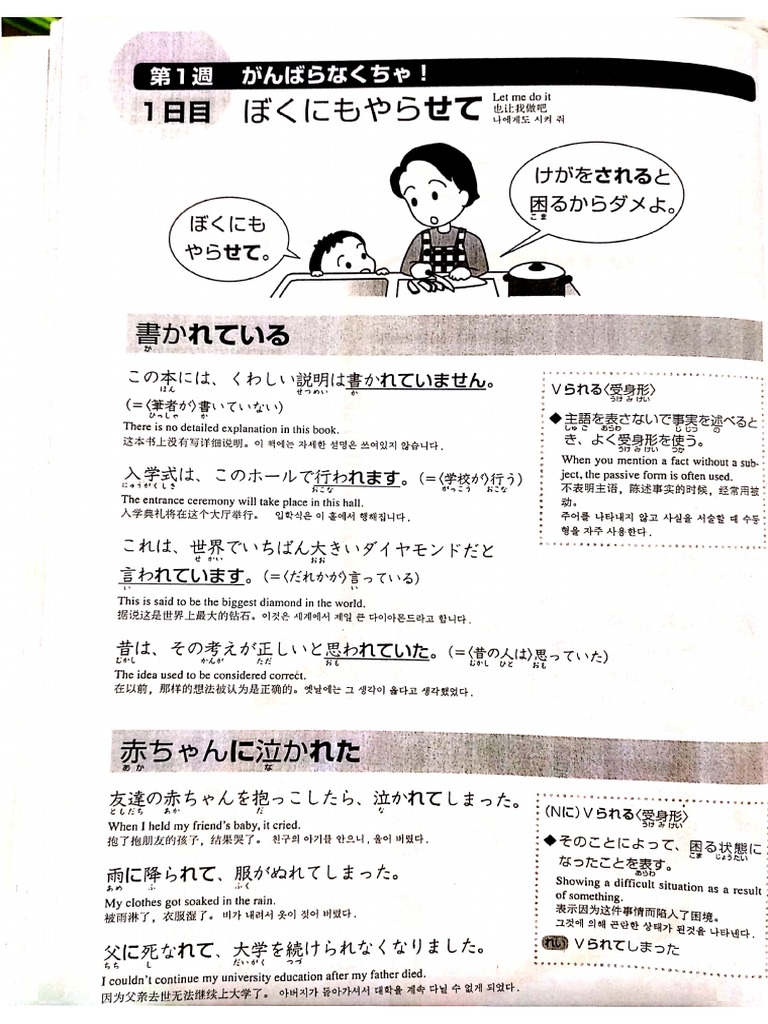 第1週 がんばらなくちゃ！
1日目 ぼくにもやらせて
Let me do it
也让我做吧
나에게도 시켜 줘
ぼくにも
やらせて。
けがをされると
困るからダメよ。
こま
書かれている
か
この本には、くわしい説明は書かれていません。
ほん せつめい か
(=〈筆者が〉書いていない)
ひっしゃ か
There is no detailed explanation in this book.
这本书上没有写详细说明。 이 책에는 자세한 설명은 쓰여있지 않습니다.
入学式は、このホールで行われます。(=〈学校が〉行う)
にゅうがくしき おこな がっこう おこな
The entrance ceremony will take place in this hall.
入学典礼将在这个大厅举行。 입학식은 이 홀에서 행해집니다.
これは、世界でいちばん大きいダイヤモンドだと
せ かい おお
言われています。(=〈だれかが〉言っている)
い い
This is said to be the biggest diamond in the world.
据说这是世界上最大的钻石。 이것은 세계에서 제일 큰 다이아몬드라고 합니다.
昔は、その考えが正しいと思われていた。(=〈昔の人は〉思っていた)
むかし かんが ただ おも むかし ひと おも
The idea used to be considered correct.
在以前，那样的想法被认为是正确的。 옛날에는 그 생각이 옳다고 생각했었다.
Vられる〈受身形〉
うけ み けい
◆主語を表さないで事実を述べると
しゅ ご あらわ じ じつ の
き、よく受身形を使う。
うけ み けい つか
When you mention a fact without a sub-
ject, the passive form is often used.
不表明主语，陈述事实的时候，经常用被
动。
주어를 나타내지 않고 사실을 서술할 때 수동
형을 자주 사용한다.
赤ちゃんに泣かれた
あか な
友達の赤ちゃんを抱っこしたら、泣かれてしまった。
ともだち あか だ な
When I held my friend's baby, it cried.
抱了抱朋友的孩子，结果哭了。 친구의 아기를 안으니, 울어 버렸다.
雨に降られて、服がぬれてしまった。
あめ ふ ふく
My clothes got soaked in the rain.
被雨淋了，衣服湿了。 비가 내려서 옷이 젖어 버렸다.
父に死なれて、大学を続けられなくなりました。
ちち し だいがく つづ
I couldn't continue my university education after my father died.
因为父亲去世无法继续上大学了。 아버지가 돌아가셔서 대학을 계속 다닐 수 없게 되었다.
(Nに) Vられる〈受身形〉
うけ み けい
◆そのことによって、困る状態に
こま じょうたい
なったことを表す。
あらわ
Showing a difficult situation as a result
of something.
表示因为这件事情而陷入了困境。
그것에 의해 곤란한 상태가 된것을 나타낸다.
れい Vられてしまった